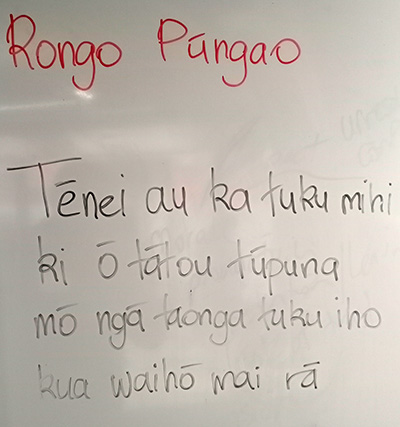 Rongo Pūngao
Tēnei au ka tuku mihi
ki ō tātou tūpuna
mō ngā taonga tuku iho
kua waihō mai rā